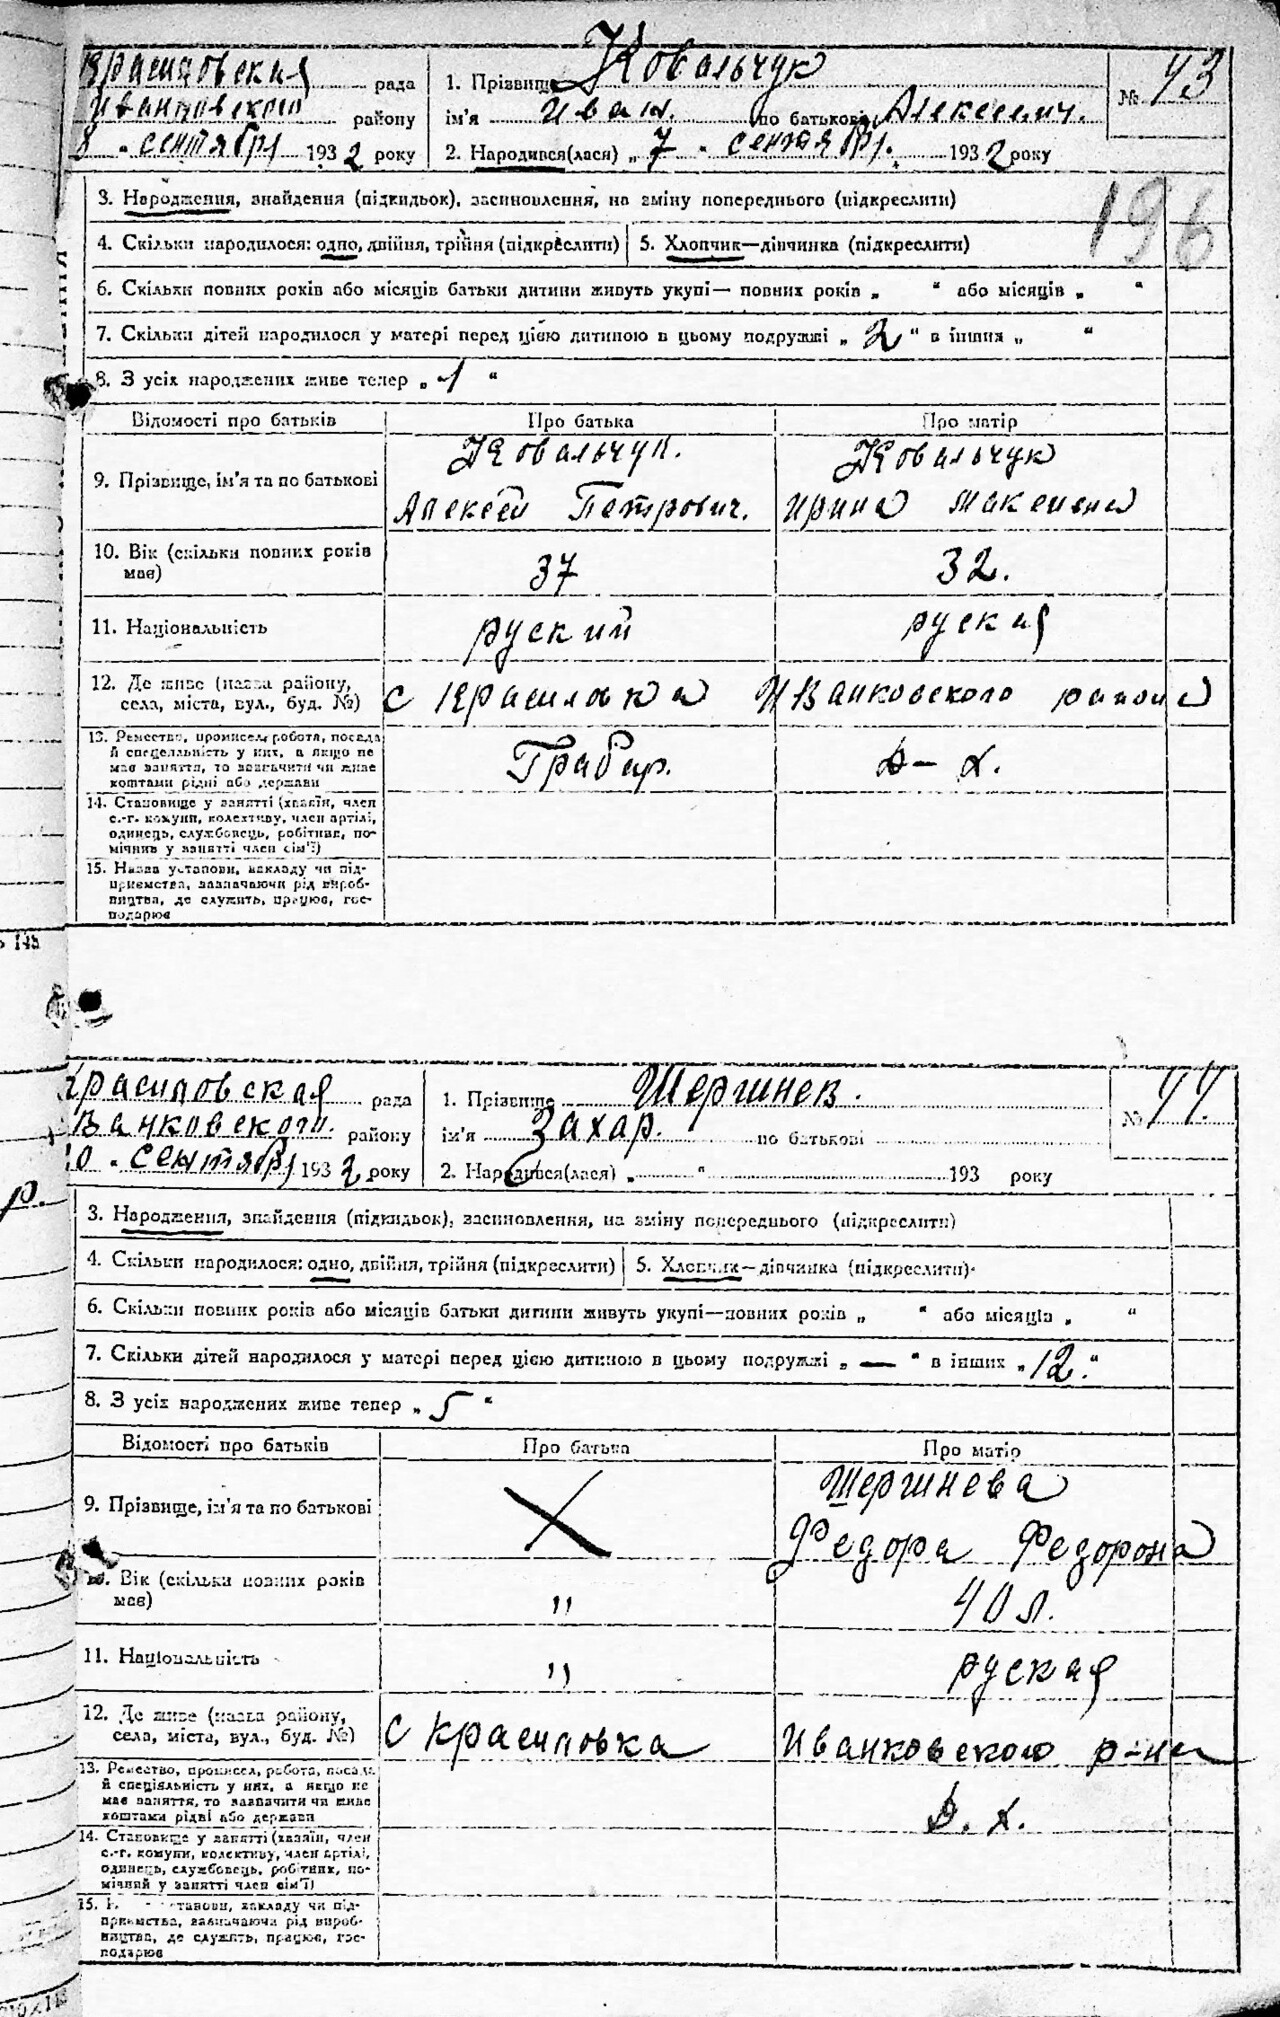 Красиловская рада
Иванковского району
8 „ сентября 1932 року
1. Прізвище Ковальчук
ім'я Иван. по батькові Алексеевич.
2. Народився(лася) „ 7 „ сентября. 1932 року
№ 43
196
3. Народження, знайдення (підкидьок), засиновлення, на зміну попереднього (підкреслити)
4. Скільки народилося: одно, двійня, трійня (підкреслити)
5. Хлопчик—дівчинка (підкреслити)
6. Скільки повних років або місяців батьки дитини живуть укупі— повних років „ “ або місяців „ “
7. Скільки дітей народилося у матері перед цією дитиною в цьому подружжі „ 2 “ в інших „ “
8. З усіх народжених живе тепер „ 1 “
Відомості про батьків Про батька Про матір
9. Прізвище, ім'я та по батькові
Ковальчук. Ковальчук
Алексей Петрович. Ирина Максимовна
10. Вік (скільки повних років має) 37 32.
11. Національність руский руская
12. Де живе (назва району,
села, міста, вул., буд. №)
с Красиловка Иванковского района
13. Ремество, промисел, робота, посада
й спеціяльність у них, а якщо не
має заняття, то зазначити чи живе
коштами рідні або держави
Грабар. д–х.
14. Становище у занятті (хазяїн, член
с.-г. комуни, колективу, член артілі,
одинець, службовець, робітник, по-
мічник у занятті член сім'ї)
15. Назва установи, закладу чи під-
приємства, зазначаючи рід вироб-
ництва, де служить, працює, гос-
подарює
Красиловская рада
Иванковского. району
10 „ сентября 1932 року
1. Прізвище Шершнев.
ім'я Захар. по батькові
2. Народився(лася) „ “ 193 року
№ 44.
р.
3. Народження, знайдення (підкидьок), засиновлення, на зміну попереднього (підкреслити)
4. Скільки народилося: одно, двійня, трійня (підкреслити)
5. Хлопчик—дівчинка (підкреслити)
6. Скільки повних років або місяців батьки дитини живуть укупі—повних років „ “ або місяців „ “
7. Скільки дітей народилося у матері перед цією дитиною в цьому подружжі „ — “ в інших „ 12. “
8. З усіх народжених живе тепер „ 5 “
Відомості про батьків Про батька Про матір
9. Прізвище, ім'я та по батькові
Шершнева
Федора Федорона
10. Вік (скільки повних років має) " 40 л.
11. Національність " руская
12. Де живе (назва району,
села, міста, вул., буд. №)
с Красиловка Иванковского р-на
13. Ремество, промисел, робота, посада
й спеціяльність у них, а якщо не
має заняття, то зазначити чи живе
коштами рідні або держави
д. х.
14. Становище у занятті (хазяїн, член
с.-г. комуни, колективу, член артілі,
одинець, службовець, робітник, по-
мічний у занятті член сім'ї)
15. Н установи, закладу чи під-
приємства, зазначаючи рід вироб-
ництва, де служить, працює, гос-
подарює